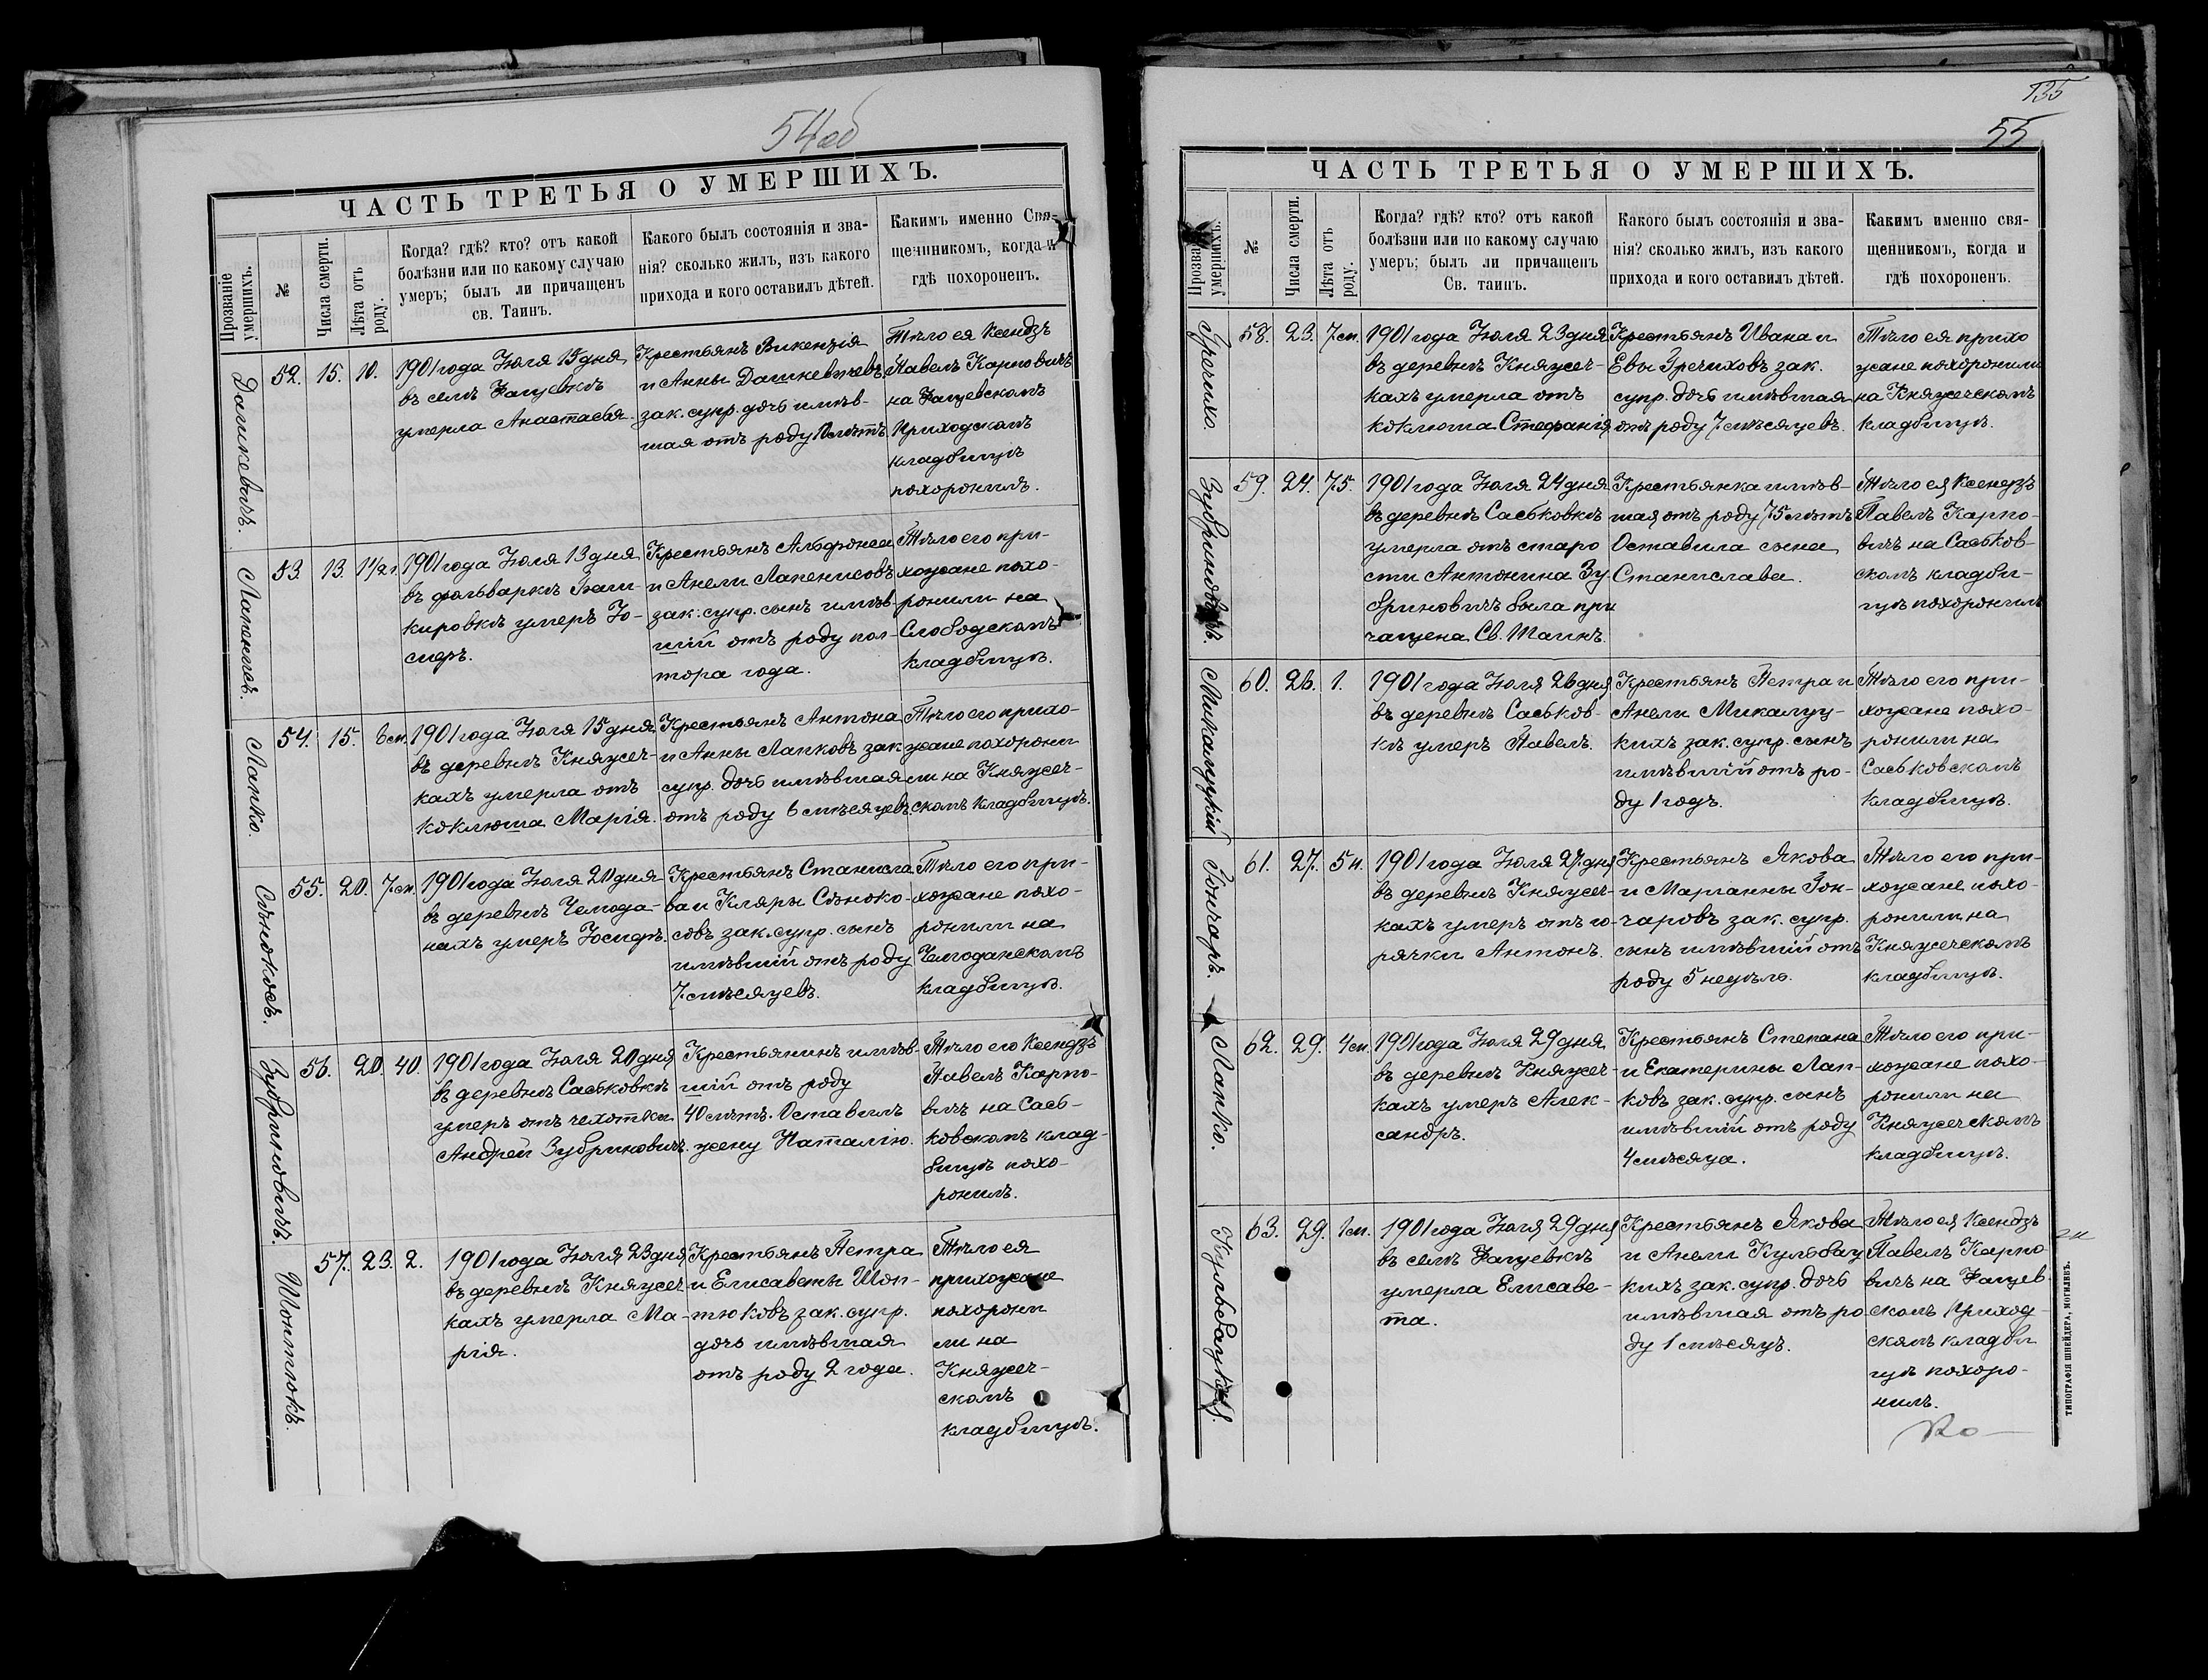 54 об
ЧАСТЬ ТРЕТЬЯ О УМЕРШИХЪ.
Прозваніе умершихъ.
№
Числа смерти.
Лѣта отъ роду.
Когда? гдѣ? кто? отъ какой
болѣзни или по какому случаю
умеръ; былъ ли причащенъ
св. Таинъ.
Какого былъ состоянія и зва-
нія? сколько жилъ, изъ какого
прихода и кого оставилъ дѣтей.
Какимъ именно Свя-
щенникомъ, когда и
гдѣ похороненъ.
Дашкевичъ.
52. 15. 10.
1901 года Іюля 15 дня
въ селѣ Фащевкѣ
умерла Анастасья
Крестьянъ Викентія
и Анны Дашкевичевъ
зак. супр. дочь имѣв-
шая отъ роду 10 лѣтъ
Тѣло ея Ксендзъ
Павелъ Карповичъ
на Фащевскомъ
Приходскомъ
кладбищѣ
похоронилъ.
Лапенисъ.
53. 13. 1 1/2 г.
1901 года Іюля 13 дня
въ фольваркѣ Баш-
кировкѣ умеръ Іо-
сифъ.
Крестьянъ Альфонса
и Анели Лапенисовъ
зак. супр. сынъ имѣв-
шій отъ роду пол-
тора года.
Тѣло его при-
хожане похо-
ронили на
Слободскомъ
кладбищѣ.
Лапко.
54. 15. 6 м.
1901 года Іюля 15 дня
въ деревнѣ Княжеч-
кахъ умерла отъ
коклюша Марія.
Крестьянъ Антона
и Анны Лапковъ зак
супр. дочь имѣвшая
отъ роду 6 мѣсяцевъ.
Тѣло его прихо-
жане похорони
ли на Княжеч-
скомъ кладбищѣ.
Сѣнокосъ.
55. 20. 7 м.
1901 года Іюля 20 дня
въ деревнѣ Чемода-
нахъ умеръ Іосифъ.
Крестьянъ Станисла
ва и Кляры Сѣноко-
совъ зак. супр. сынъ
имѣвшій отъ роду
7 мѣсяцевъ.
Тѣло его при-
хожане похо-
ронили на
Чемоданскомъ
кладбищѣ.
Зубриновичъ.
56. 20. 40.
1901 года Іюля 20 дня
въ деревнѣ Саськовкѣ
умеръ отъ чехотки
Андрей Зубриновичъ.
Крестьянинъ имѣв-
шій отъ роду
40 лѣтъ. Оставилъ
жену Наталію.
Тѣло его Ксендзъ
Павелъ Карпо-
вичъ на Сась-
ковскомъ клад-
бищѣ похо-
ронилъ.
Шоптюкъ.
57. 23. 2.
1901 года Іюля 23 дня
въ деревнѣ Княжеч-
кахъ умерла Ма-
рія.
Крестьянъ Петра
и Елисаветы Шоп-
тюковъ зак. супр.
дочь имѣвшая
отъ роду 2 года.
Тѣло ея
прихожане
похорони
ли на
Княжеч-
скомъ
кладбищѣ.
135
55
ЧАСТЬ ТРЕТЬЯ О УМЕРШИХЪ.
№
Числа смерти.
Лѣта отъ роду.
Когда? гдѣ? кто? отъ какой
болѣзни или по какому случаю
умеръ; былъ ли причащенъ
Св. таинъ.
Какого былъ состоянія и зва-
нія? сколько жилъ, изъ какого
прихода и кого оставилъ дѣтей.
Какимъ именно свя-
щенникомъ, когда и
гдѣ похороненъ.
Гречихо.
58. 23. 7 м.
1901 года Іюля 23 дня
въ деревнѣ Княжеч-
кахъ умерла отъ
коклюша Стефанія
Крестьянъ Ивана и
Евы Гречиховъ зак.
супр. дочь имѣвшая
отъ роду 7 мѣсяцевъ.
Тѣло ея прихо
жане похоронили
на Княжечскомъ
кладбищѣ.
Зубриновичъ.
59. 24. 75.
1901 года Іюля 24 дня
въ деревнѣ Саськовкѣ
умерла отъ старо
сти Антонина Зу-
бриновичъ была при
чащена Св. Таинъ.
Крестьянка имѣв-
шая отъ роду 75 лѣтъ
Оставила сына
Станислава.
Тѣло ея Ксендзъ
Павелъ Карпо-
вичъ на Саськов-
скомъ кладби-
щѣ похоронилъ
Микалуцкій
60. 26. 1.
1901 года Іюля 26 дня
въ деревнѣ Саськов-
кѣ умеръ Павелъ.
Крестьянъ Петра и
Анели Микалуц-
кихъ зак. супр. сынъ
имѣвшій отъ ро-
ду 1 годъ.
Тѣло его при-
хожане похо-
ронили на
Саськовскомъ
кладбищѣ.
Гончаръ.
61. 27. 5 н.
1901 года Іюля 27 дня
въ деревнѣ Княжеч-
кахъ умеръ отъ го-
рячки Антонъ.
Крестьянъ Якова
и Маріанны Гон-
чаровъ зак. супр.
сынъ имѣвшій отъ
роду 5 недѣль.
Тѣло его при-
хожане похо-
ронили на
Княжечскомъ
кладбищѣ.
Лапко.
62. 29. 4 м.
1901 года Іюля 29 дня
въ деревнѣ Княжеч-
кахъ умеръ Алек-
сандръ.
Крестьянъ Степана
и Екатерины Лап-
ковъ зак. супр. сынъ
имѣвшій отъ роду
4 мѣсяца.
Тѣло его при-
хожане похо-
ронили на
Княжечскомъ
кладбищѣ.
63. 29. 1 м.
1901 года Іюля 29 дня
въ селѣ Фащевкѣ
умерла Елисаве-
та.
Крестьянъ Якова
и Анели Кульбац
кихъ зак. супр. дочь
имѣвшая отъ ро
ду 1 мѣсяцъ.
Тѣло ея Ксендзъ
Павелъ Карпо-
вичъ на Фащев-
скомъ Приход-
скомъ кладби
щѣ похоро-
нилъ.
ТИПОГРАФІЯ ШНЕЙДЕРА, МОГИЛЕВЪ.